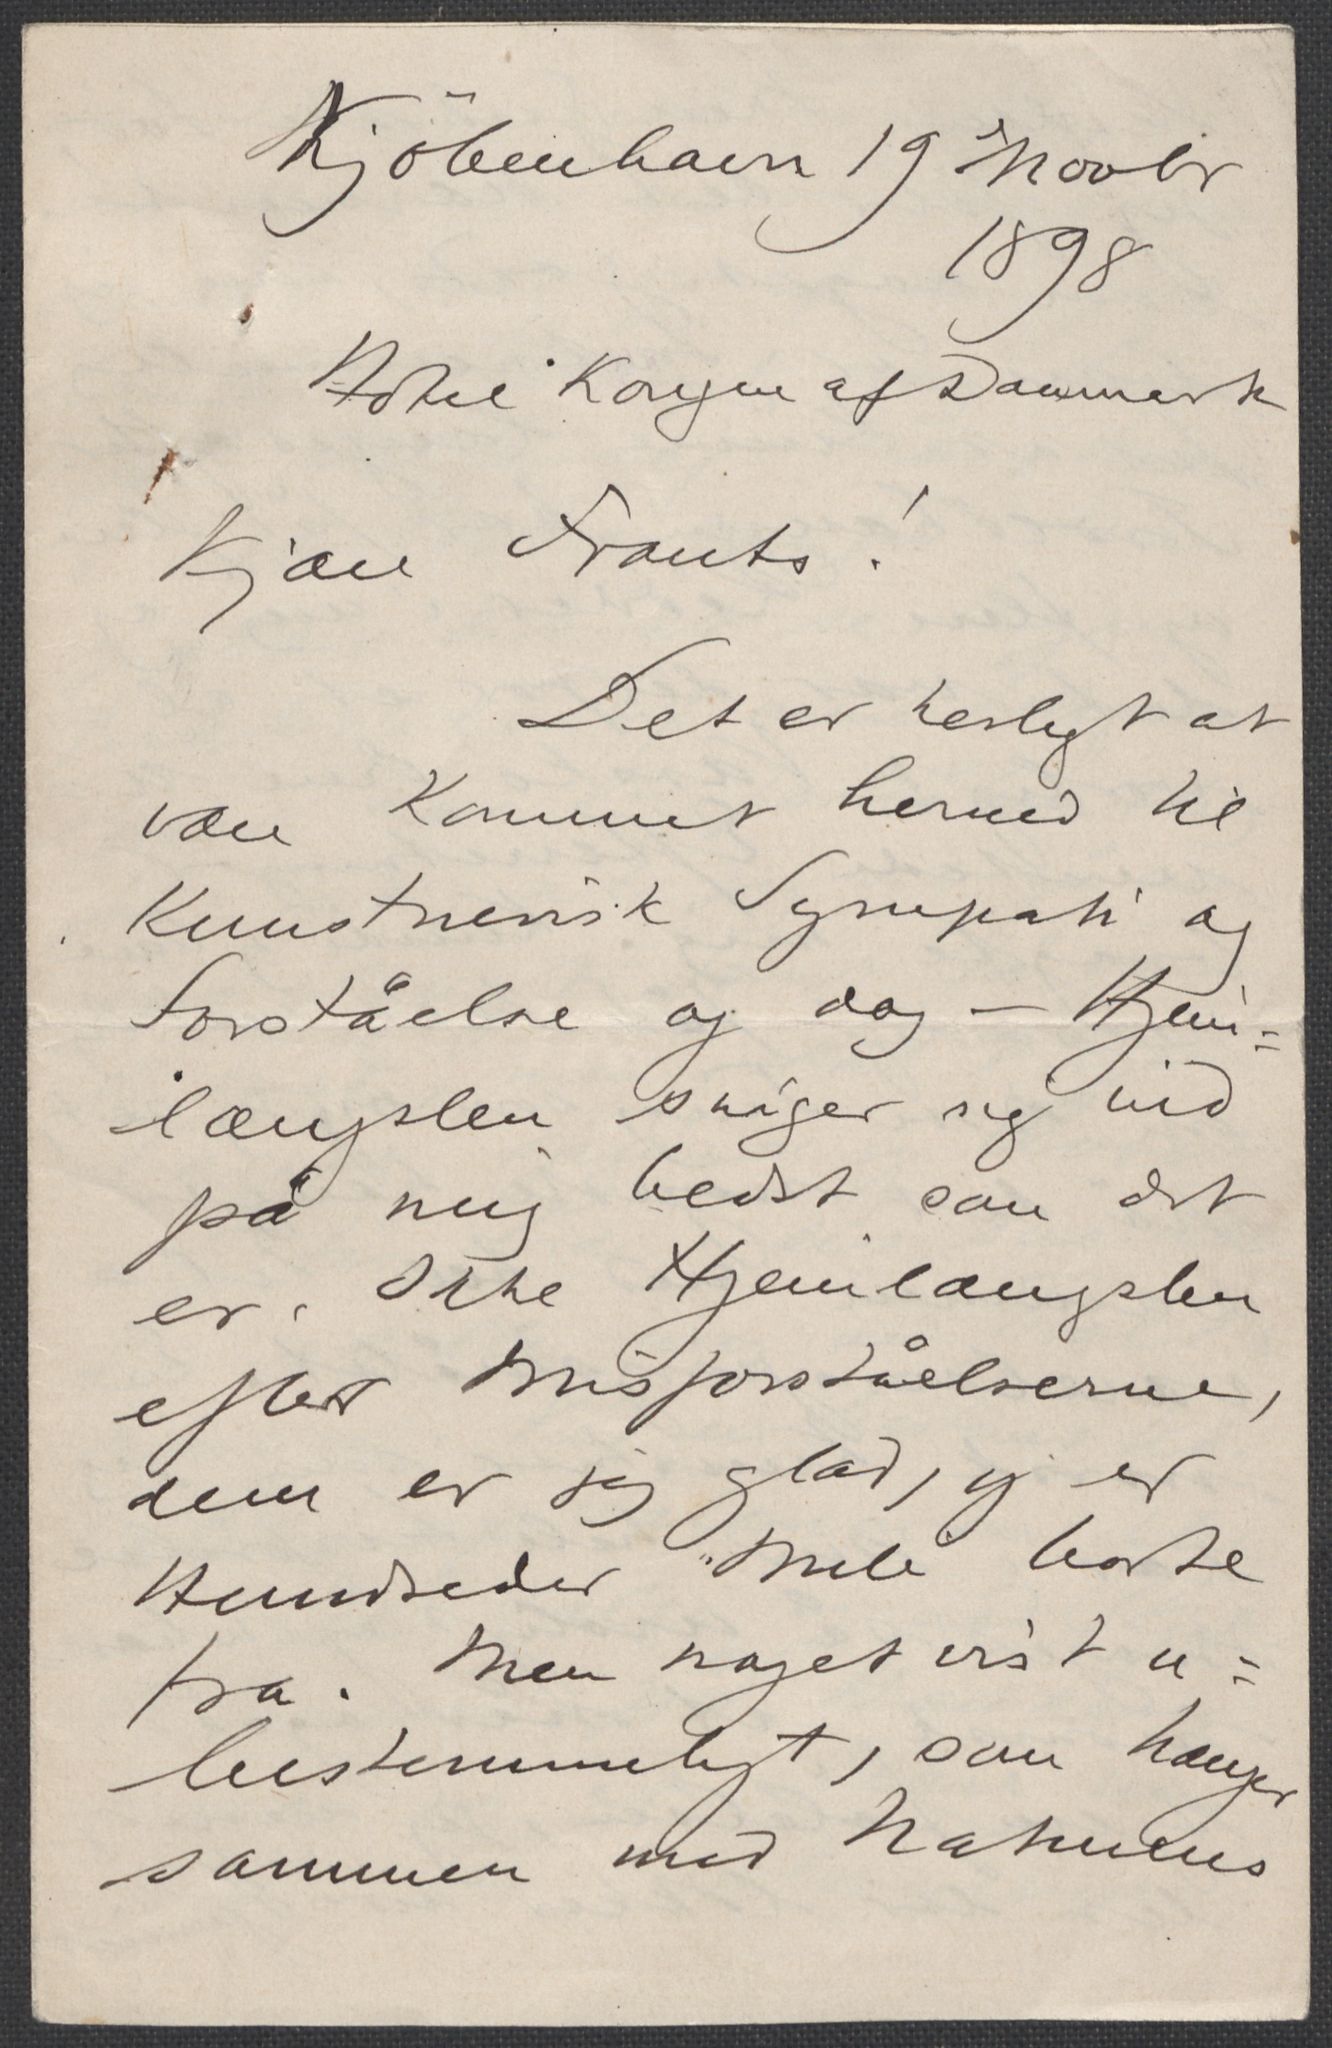 Kjöbenhavn 19 Novbr
1898
Hotel Kongen af Danmark
Kjære Frants!
Det er herligt at
være kommet herned til
Kunstnerisk Sympati og
Forståelse og dog – Hjem=
længslen sniger sig ind
på mig bedst som det
er. Ikke Hjemlængslen
efter Misforståelserne,
dem er jeg glad, jeg er
Hundreder Mile borte
fra. Men noget vist u=
bestemmeligt, som hænger
sammen med Naturens